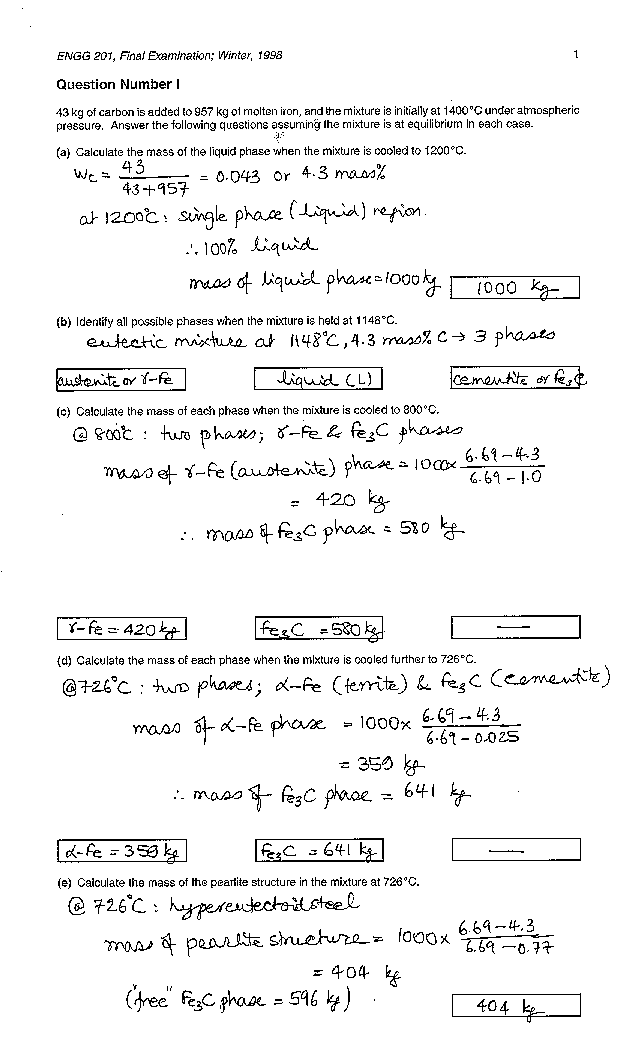 ENGG 201, Final Examination; Winter, 1998 1
Question Number I
43 kg of carbon is added to 957 kg of molten iron, and the mixture is initially at 1400°C under atmospheric
pressure. Answer the following questions assuming the mixture is at equilibrium in each case.
(a) Calculate the mass of the liquid phase when the mixture is cooled to 1200°C.
Wc = 43 / 43+957 = 0.043 or 4.3 mass%
at 1200°C: single phase (liquid) region.
∴ 100% liquid
mass of liquid phase = 1000 kg 1000 kg
(b) Identify all possible phases when the mixture is held at 1148°C.
eutectic mixture at 1148°C, 4.3 mass% C → 3 phases
austenite or γ-Fe liquid (L) cementite or Fe3C
(c) Calculate the mass of each phase when the mixture is cooled to 800°C.
@ 800°C : two phases; γ-Fe & Fe3C phases
mass of γ-Fe (austenite) phase = 1000x 6.69-4.3 / 6.69-1.0
= 420 kg
∴ mass of Fe3C phase = 580 kg
γ-Fe = 420 kg Fe3C = 580 kg —
(d) Calculate the mass of each phase when the mixture is cooled further to 726°C.
@726°C : two phases; α-Fe (ferrite) & Fe3C (cementite)
mass of α-Fe phase = 1000x 6.69-4.3 / 6.69-0.025
= 359 kg
∴ mass of Fe3C phase = 641 kg
α-Fe = 359 kg Fe3C = 641 kg —
(e) Calculate the mass of the pearlite structure in the mixture at 726°C.
@ 726°C : hypereutectoid steel
mass of pearlite structure = 1000x 6.69-4.3 / 6.69-0.77
= 404 kg
("free" Fe3C phase = 596 kg) 404 kg